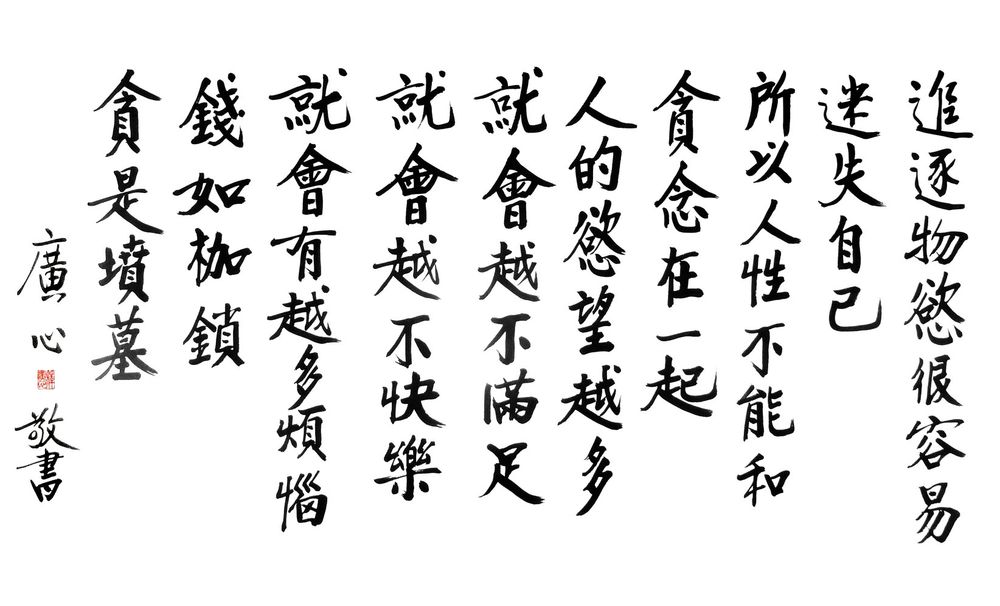 追逐物慾很容易
迷失自己
所以人性不能和
貪念在一起
人的慾望越多
就會越不滿足
就會越不快樂
就會有越多煩惱
錢如枷鎖
貪是墳墓
廣心 敬書